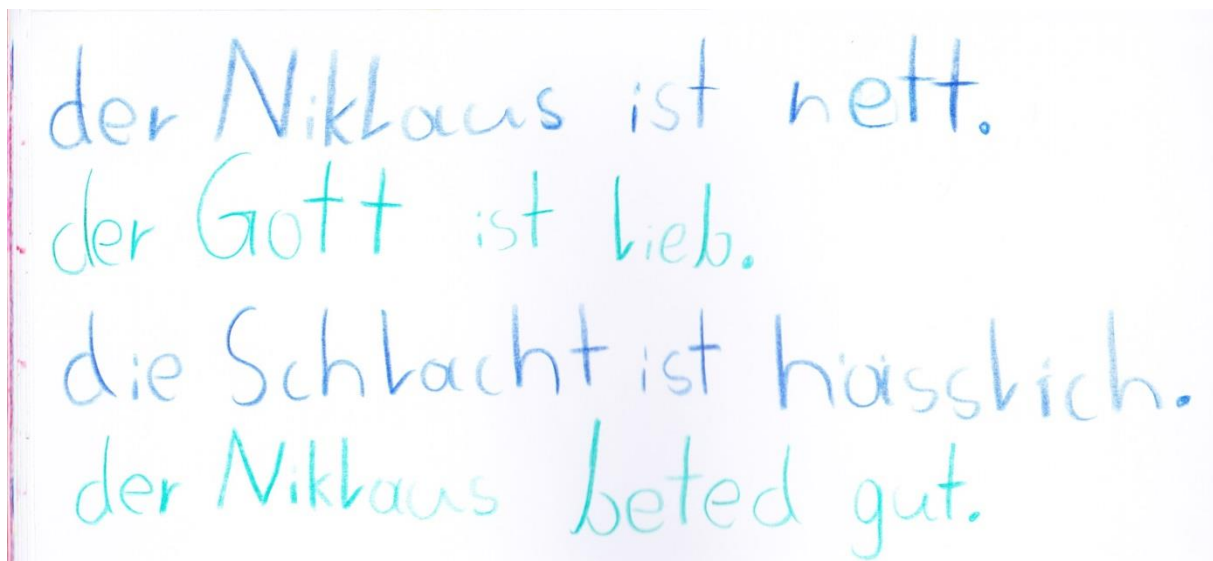 der Niklaus ist nett.
der Gott ist lieb.
die Schlacht ist hässlich.
der Niklaus beted gut.